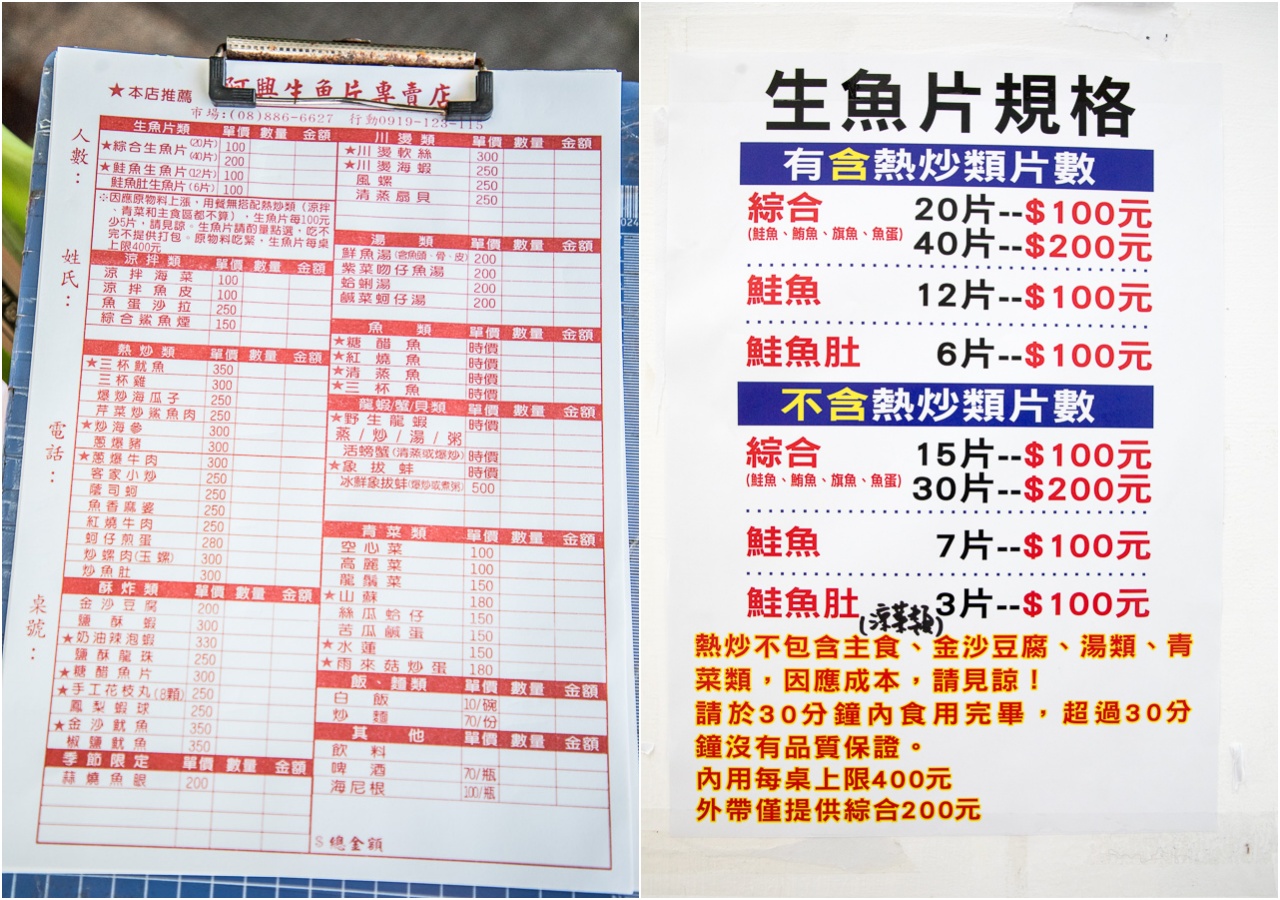 ★本店推薦
阿興生魚片專賣店
市場:(08)886-6627 行動0919-123-115
人數:
姓氏:
電話:
桌號:
生魚片類 單價 數量 金額
★綜合生魚片(20片) 100
(40片) 200
★鮭魚生魚片(12片) 100
鮭魚肚生魚片(6片) 100
※因應原物料上漲,用餐無搭配熱炒類(涼拌
、青菜和主食區都不算),生魚片每100元
少5片,請見諒。生魚片請酌量點選,吃不
完不提供打包。原物料吃緊,生魚片每桌
上限400元
涼拌類 單價 數量 金額
涼拌海菜 100
涼拌魚皮 100
魚蛋沙拉 250
綜合鯊魚煙 150
熱炒類 單價 數量 金額
★三杯魷魚 350
三杯雞 300
爆炒海瓜子 250
芹菜炒鯊魚肉 250
★炒海參 300
蔥爆豬 300
★蔥爆牛肉 300
客家小炒 250
蔭司蚵 250
魚香麻婆 250
紅燒牛肉 250
蚵仔煎蛋 280
炒螺肉(玉螺) 300
炒魚肚 300
酥炸類 單價 數量 金額
金沙豆腐 200
鹽酥蝦 300
★奶油辣泡蝦 330
鹽酥龍珠 250
★糖醋魚片 300
★手工花枝丸(8顆) 250
鳳梨蝦球 250
★金沙魷魚 350
椒鹽魷魚 350
季節限定 單價 數量 金額
蒜燒魚眼 200
川燙類 單價 數量 金額
★川燙軟絲 300
★川燙海蝦 250
風螺 250
清蒸扇貝 250
湯類 單價 數量 金額
鮮魚湯(含魚頭、骨、皮) 200
紫菜吻仔魚湯 200
蛤蜊湯 200
鹹菜蚵仔湯 200
魚類 單價 數量 金額
★糖醋魚 時價
★紅燒魚 時價
★清蒸魚 時價
★三杯魚 時價
龍蝦/蟹/貝類 單價 數量 金額
★野生龍蝦 時價
蒸/炒/湯/粥
活螃蟹(清蒸或爆炒) 時價
★象拔蚌 時價
冰鮮象拔蚌(爆炒或煮粥) 500
青菜類 單價 數量 金額
空心菜 100
高麗菜 100
龍鬚菜 150
★山蘇 180
絲瓜蛤仔 150
苦瓜鹹蛋 150
★水蓮 150
★雨來菇炒蛋 180
飯、麵類 單價 數量 金額
白飯 10/碗
炒麵 70/份
其他 單價 數量 金額
飲料
啤酒 70/瓶
海尼根 100/瓶
$總金額
生魚片規格
有含熱炒類片數
綜合 20片--$100元
(鮭魚、鮪魚、旗魚、魚蛋) 40片--$200元
鮭魚 12片--$100元
鮭魚肚 6片--$100元
不含熱炒類片數
綜合 15片--$100元
(鮭魚、鮪魚、旗魚、魚蛋) 30片--$200元
鮭魚 7片--$100元
鮭魚肚 3片--$100元
(涼菜類)
熱炒不包含主食、金沙豆腐、湯類、青
菜類,因應成本,請見諒!
請於30分鐘內食用完畢,超過30分
鐘沒有品質保證。
內用每桌上限400元
外帶僅提供綜合200元